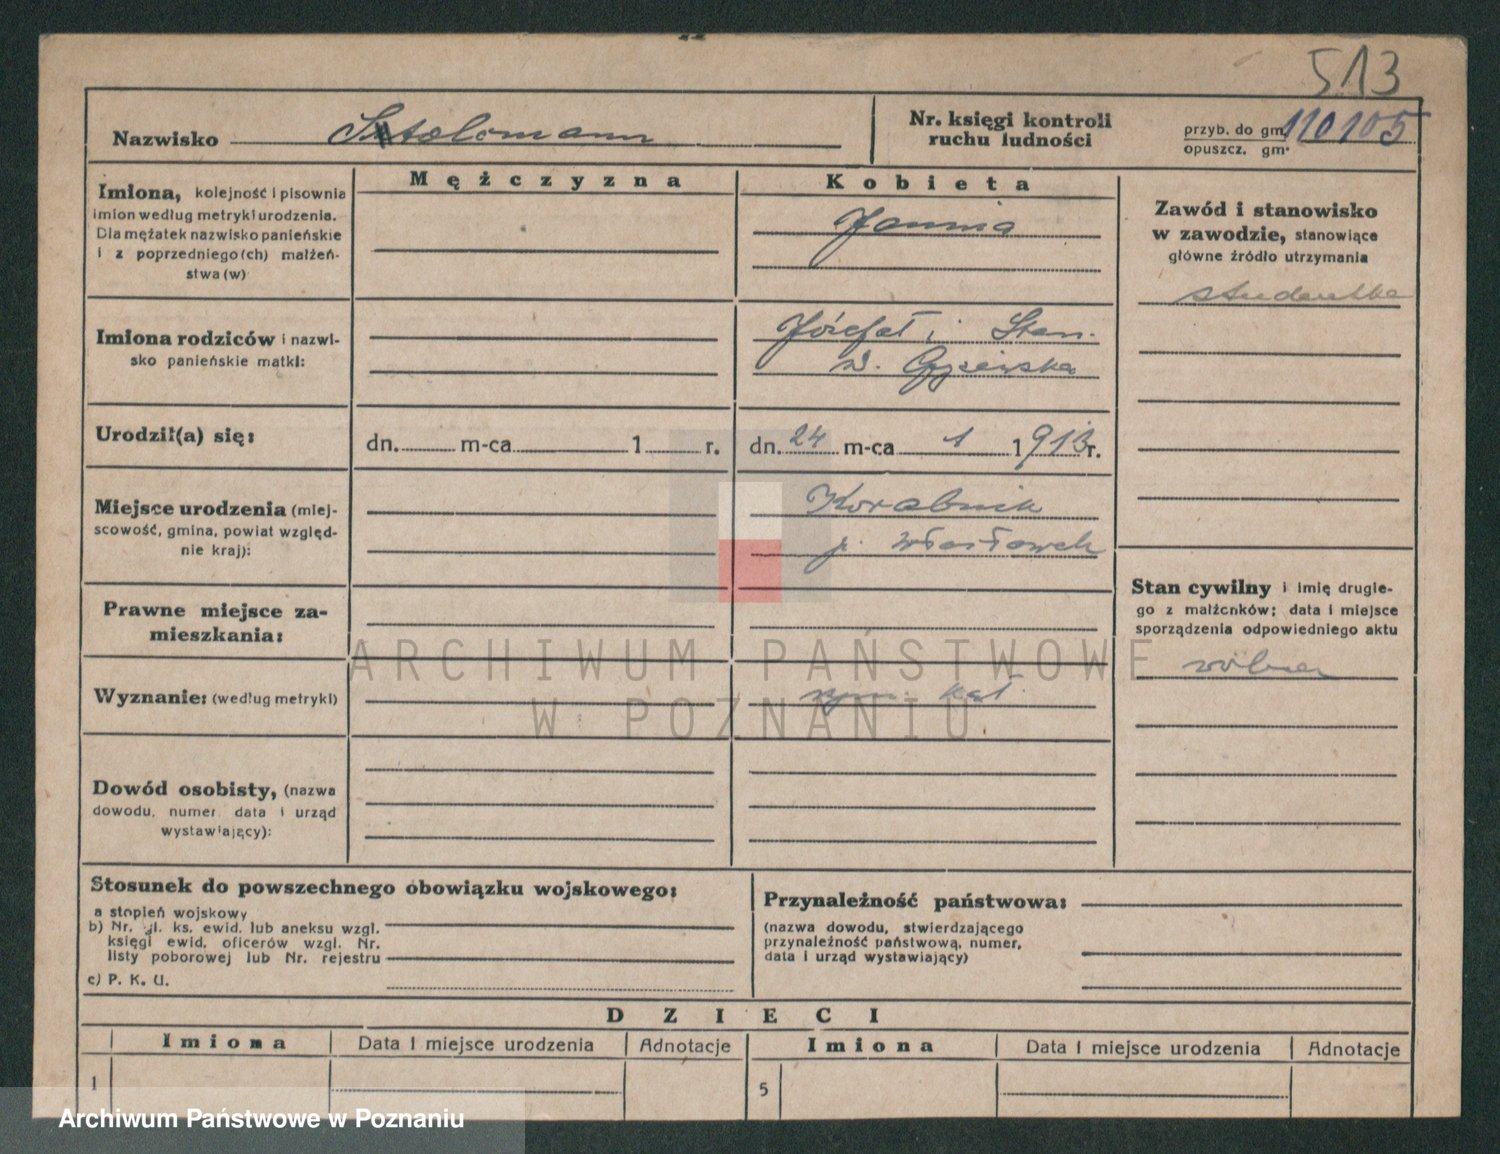 513
Nazwisko
Nr. księgi kontroli
ruchu ludności
przyb. do gm. 110105
opuszcz. gm.
Mężczyzna
Kobieta
Imiona, kolejność i pisownia
imion według metryki urodzenia.
Dla mężatek nazwisko panieńskie
i z poprzedniego(ch) małżeń-
stwa(w)
Janina
Zawód i stanowisko
w zawodzie, stanowiące
główne źródło utrzymania
studentka
Imiona rodziców i nazwi-
sko panieńskie matki:
Józefat i Stan.
z d.
Urodził(a) się:
dn. m-ca 1 r.
dn. 24 m-ca 1 1913 r.
Miejsce urodzenia (miej-
scowość, gmina, powiat względ-
nie kraj):
Korabnik
p. Włocławek
Stan cywilny i imię drugie-
go z małżonków; data i miejsce
sporządzenia odpowiedniego aktu
wolna
Prawne miejsce za-
mieszkania:
ARCHIWUM PAŃSTWOWE
W POZNANIU
Wyznanie: (według metryki)
rzym. kat.
Dowód osobisty, (nazwa
dowodu, numer, data i urząd
wystawiający):
Stosunek do powszechnego obowiązku wojskowego:
a stopień wojskowy
b) Nr. gl. ks. ewid. lub aneksu wzgl.
księgi ewid. oficerów wzgl. Nr.
listy poborowej lub Nr. rejestru
c) P. K. U.
Przynależność państwowa:
(nazwa dowodu, stwierdzającego
przynależność państwową, numer,
data i urząd wystawiający)
DZIECI
Imiona Data i miejsce urodzenia Adnotacje Imiona Data i miejsce urodzenia Adnotacje
1 5
Archiwum Państwowe w Poznaniu